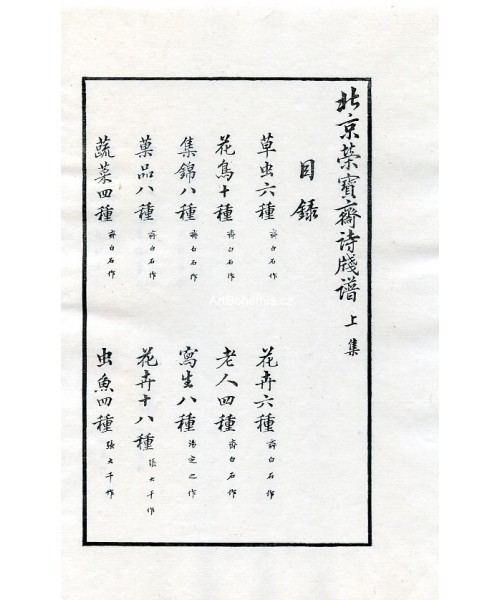 北京榮寶齋詩牋譜 上集
目錄
草虫六種 齊白石作
花卉六種 齊白石作
花鳥十種 齊白石作
老人四種 齊白石作
集錦八種 齊白石作
寫生八種 湯定之作
菓品八種 齊白石作
花卉十八種 張大千作
蔬菜四種 齊白石作
虫魚四種 張大千作
ArtBohemia.cz